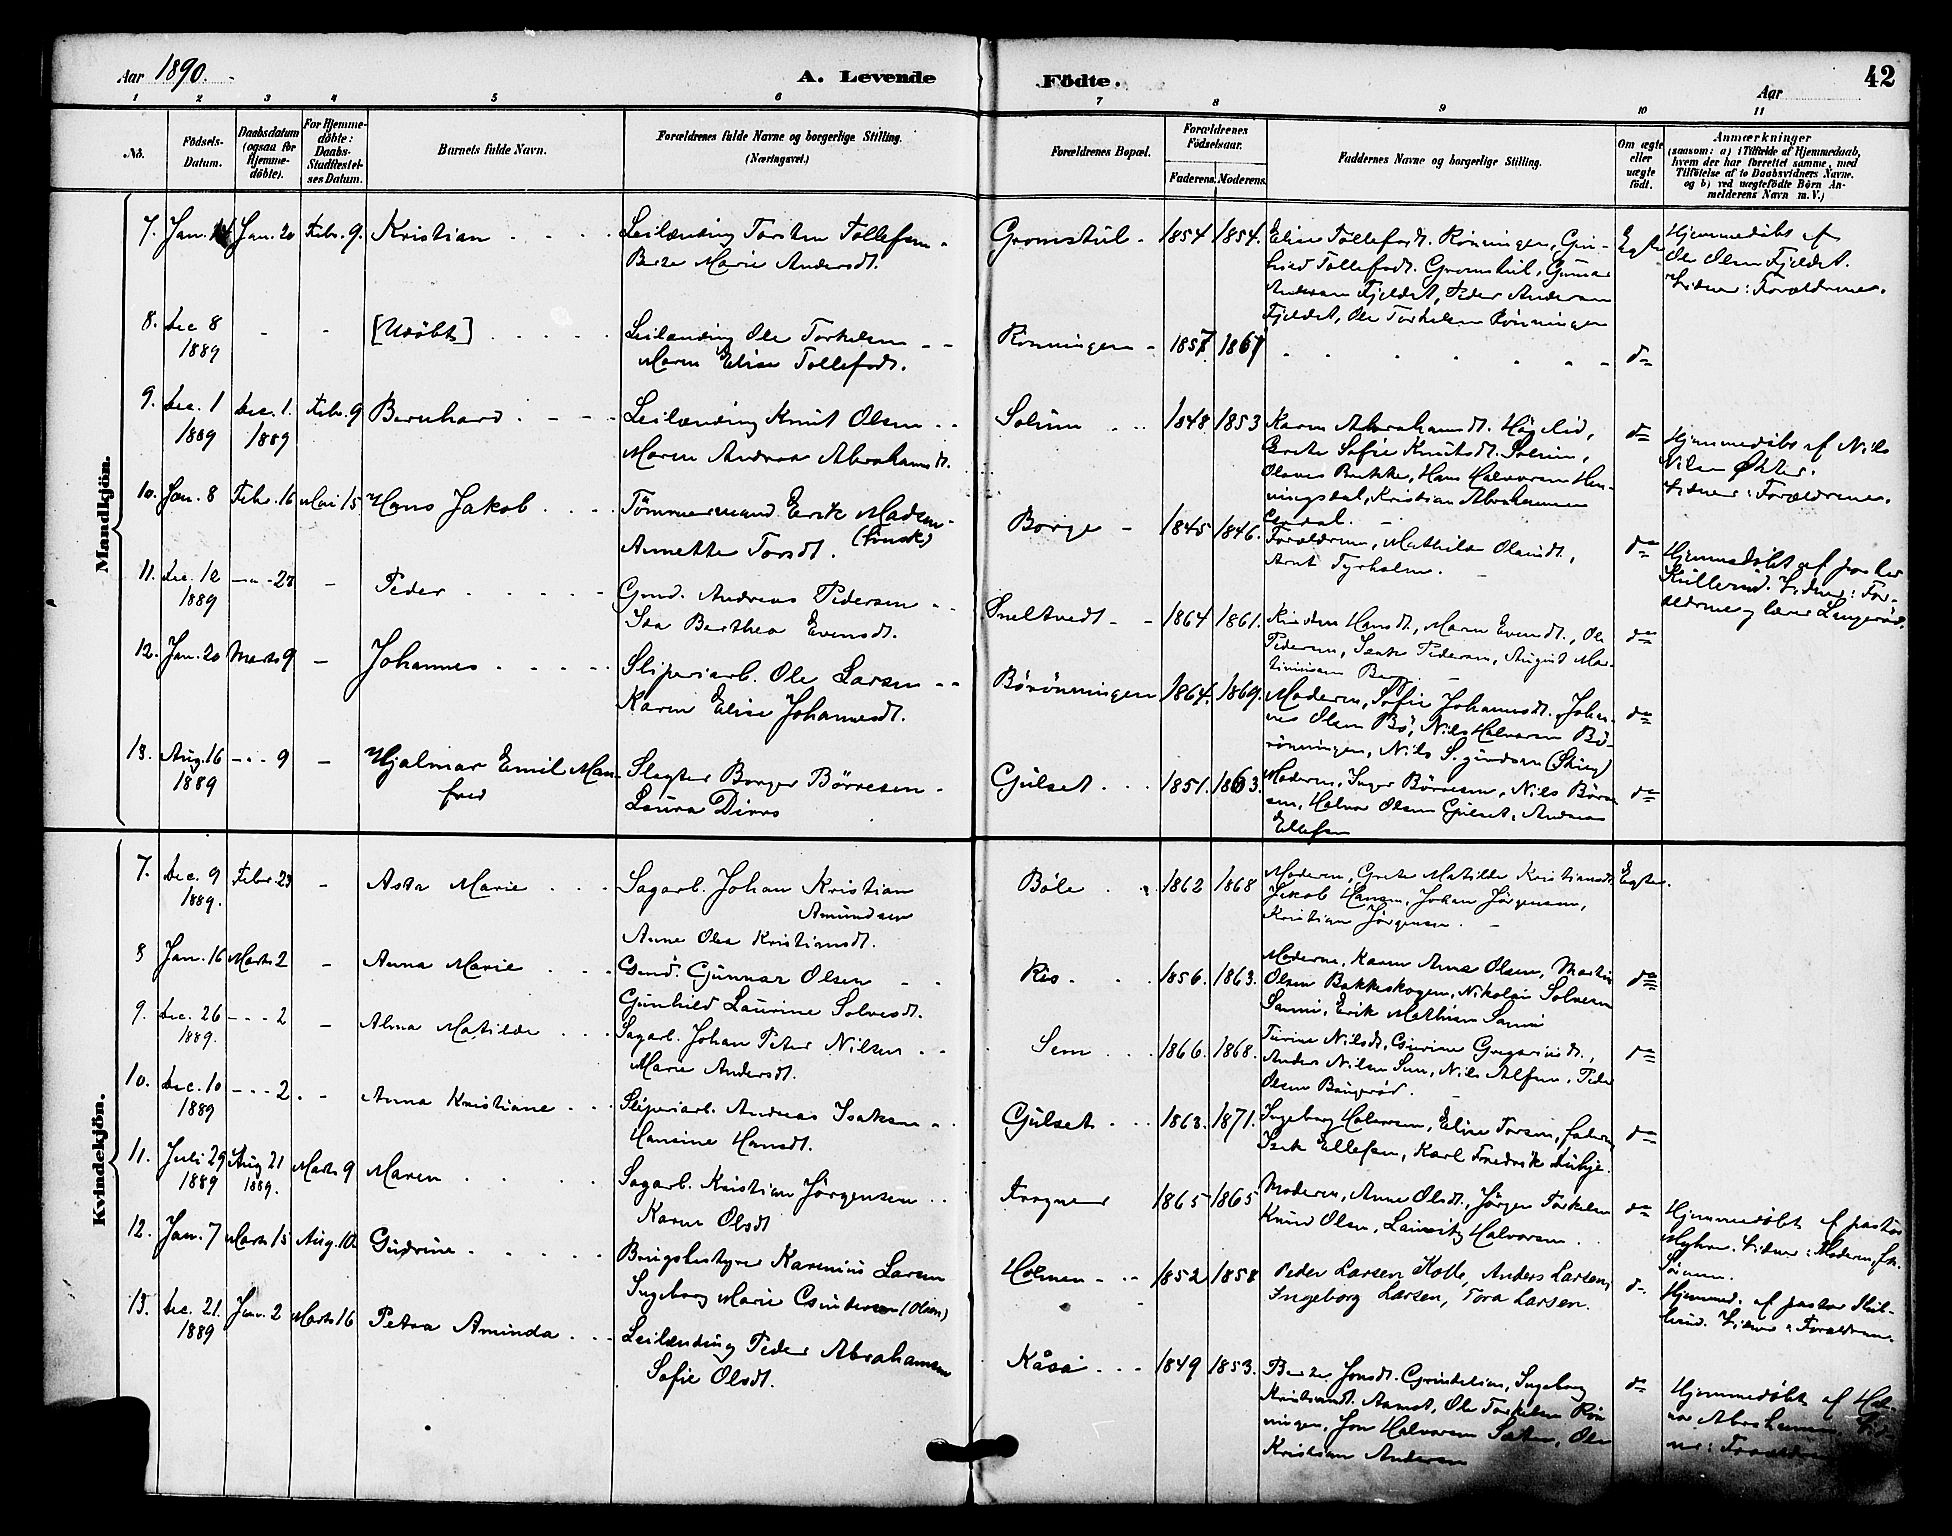 Aar 1890.
A. Levende Födte.
Aar
42
1 2 3 4 5 6 7 8 9 10 11
No.
Födsels-
Datum.
Daabsdatum
(ogsaa for
Hjemme-
döbte).
For Hjemme-
döbte:
Daabs-
Stadfæstel-
ses Datum.
Barnets fulde Navn.
Forældrenes fulde Navne og borgerlige Stilling.
(Næringsvei.)
Forældrenes Bopæl.
Forældrenes
Födselsaar.
Faderens. Moderens.
Faddernes Navne og borgerlige Stilling.
Om ægte
eller
uægte
født.
Anmærkninger
(saasom: a) i Tilfælde af Hjemmedaab,
hvem der har forrettet samme, med
Tilföielse af to Daabsvidners Navne.
og b) ved uægtefödte Börn An-
melderens Navn m. V.)
Mandkjön.
7. Jan. Jan. 20 Febr. 9. Kristian
Leilænding Torsten Tollefsen
Berte Marie Andersdt.
Gromstul 1854 1854.
Elise Tollefsdt. Rønningen, Gun-
hild Tollefsdt. Gromstul, Gunnar
Andersen Fjeldet, Peder Andersen
Fjeldet, Ole Torkelsen Rønningen
Egte
Hjemmedøbt af
Ole Olsen Fjeldet.
Vidner: Forældrene.
8. Dec 8
1889
[Udöbt]
Leilænding Ole Torkelsen
Maren Elise Tollefsdt.
Rønningen 1857 1861
do
9. Dec. 1
1889
Dec. 1.
1889
Febr. 9 Bernhard
Leilænding Knut Olsen
Maren Andrea Abrahamsdt.
Solum 1848 1853
Karen Abrahamsdt. Høgelid,
Grete Sofie Knutsdt. Solum,
Olaves Bakke, Hans Halvorsen Hen-
ningsdal, Kristian Abrahamsen
do
Hjemmedøbt af Nils
Nilsen Økter.
Vidner: Forældrene.
10. Jan. 8 Febr. 16 Mai 15 Hans Jakob
Tömmermand Erik Madsen
(Finsk)
Annette Torsdt.
Borge 1845 1846.
Forældrene, Mathilde Olausdt.,
Arnt Tyrholm.
do
Hjemmedøbt af pastor
Kullerud. Vidner: For-
ældrene og lærer Langerød.
11. Dec. 12
1889
23
Peder
Gmd. Andreas Pedersen
Ida Berthea Evensdt.
Sneltvedt 1864 1861.
Kirsten Hansdt., Maren Evensdt., Ole
Pedersen, Isak Pedersen, August Mar-
tiniusen
do
12. Jan. 20 Marts 9 Johannes
Sliperiarb. Ole Larsen
Karen Elise Johannesdt.
Börönningen 1864. 1869.
Moderen, Sofie Johannesdt. Johan-
nes Olsen Bö, Nils Halvorsen Bö-
rönningen, Nils Sigurdsen (Skien)
do
13. Aug. 16
1889
9
Hjalmar Emil Man-
fred
Slagter Borger Börresen
Laura Divvs
Gjulset 1851. 1863.
Moderen, Inger Börresen, Nils Börre-
sen, Halvor Olsen Gjulset, Andreas
Ellefsen
do
Kvindekjön.
7. Dec. 9
1889.
Febr. 23
Asta Marie
Sagarb. Johan Kristian
Amundsen
Anne Olea Kristiansdt.
Böle 1862 1868
Moderen, Grete Matilde Kristiansdt.
Jakob Hansen, Johan Jörgensen,
Kristian Jörgensen.
Egte.
8 Jan. 16 Marts 2
Anna Marie
Gmd. Gunnar Olsen
Gunhild Laurine Solvesdt.
Ris 1856. 1863.
Moderen, Karen Anne Olsen, Martin
Olsen Bakkeskogen, Nikolai Solvesen
Sanni, Erik Mathisen Sanni
do
9. Dec. 26
1889.
2
Alma Matilde
Sagarb. Johan Peter Nilsen
Marie Andersdt.
Sem 1866. 1868.
Turine Nilsdt., Gurine Gregariusdt.,
Anders Nilsen Sem, Nils Alfsen, Peder
Olsen Baugerød.
do
10. Dec. 10
1889
2.
Anna Kristiane
Sliperiarb. Andreas Isaksen
Hansine Hansdt.
Gjulset 1863. 1871.
Ingeborg Halvorsen, Elise Torsen, faderen
Isak Ellefsen, Karl Fredrik
do
11. Juli 29
1889
Aug 21
1889.
Marts 9 Maren
Sagarb. Kristian Jörgensen
Karen Olsdt
Frogner 1865 1865
Moderen, Anne Olsdt., Jörgen Torkelsen
Knud Olsen, Lauritz Halvorsen.
do
Hjemmedøbt af pastor
Myhre. Vidner: Moderen,
Sörensen.
12. Jan. 7 Marts 15 Aug. 10 Gudrune
Brugsbestyrer Karenius Larsen
Ingeborg Marie Gundersen (Olsen)
Holmen 1852 1858
Peder Larsen Kolle, Anders Larsen,
Ingeborg Larsen, Tora Larsen.
do
Hjemmed. af pastor Kul-
lerud. Vidner: Forældrene
13. Dec. 21.
1889
Jan. 2 Marts 16 Petra Aminda
Leilænding Peder Abrahamsen
Sofie Olsdt.
Kåsa 1849 1853.
Berte Jonsdt. Grindelien, Ingeborg
Kristiansdt. Aamot, Ole Torkelsen Røn-
ningen, Jon Halvorsen Sæter, Ole
Kristian Andersen
do
Hjemmedøbt af Hal-
vor Abrahamsen, Vid-
ner: Forældrene